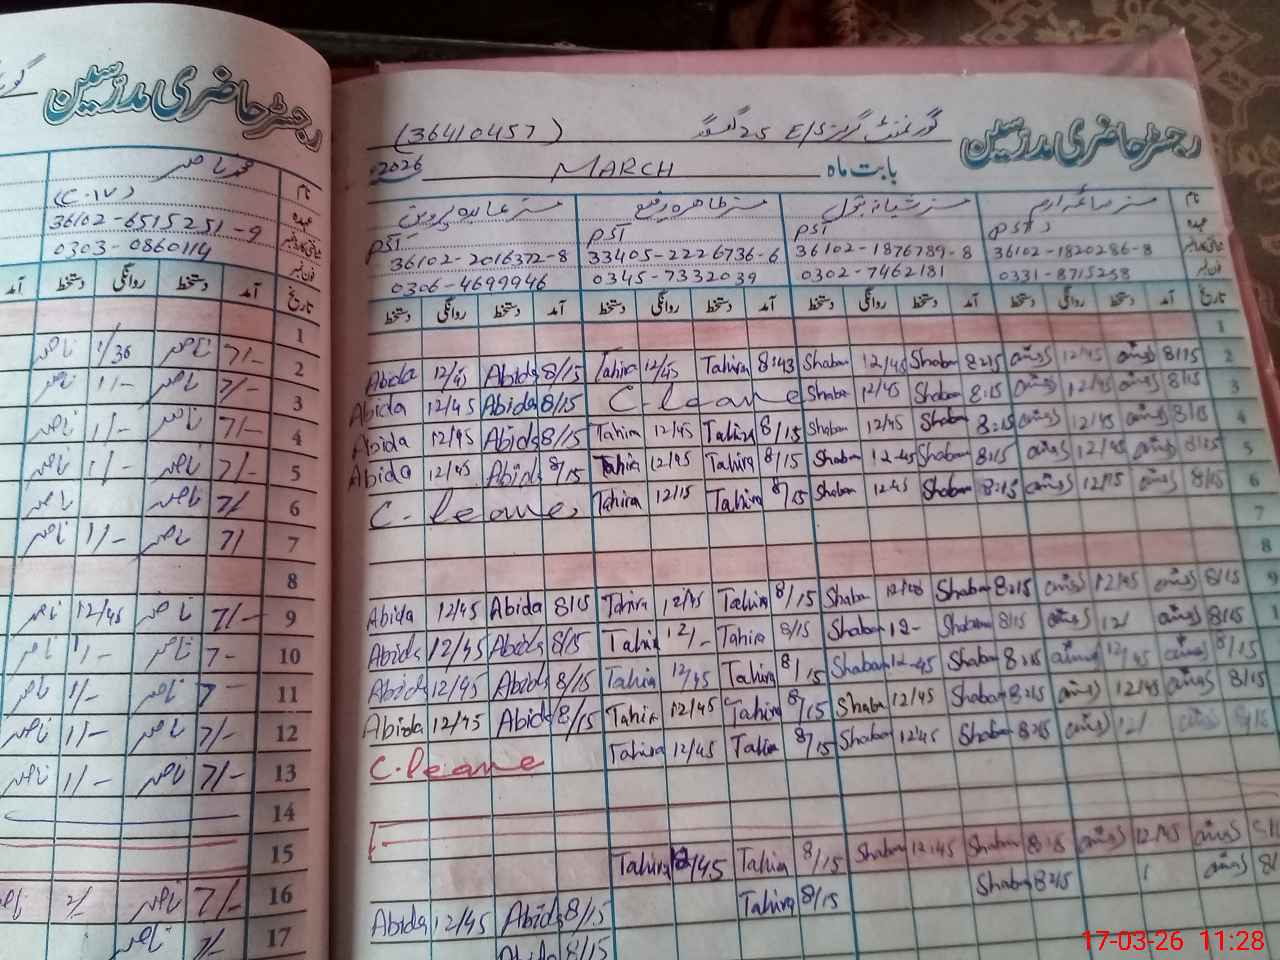 رجسٹر حاضری مدرسین
(36410457) گورنمنٹ گرلز E/S 25
رجسٹر حاضری مدرسین
2026 MARCH بابت ماہ
محمد ناصر نام
(C.IV) عہدہ
36102-6515251-9
0303-0860114 فون نمبر
آمد دستخط روانگی دستخط آمد تاریخ
مسز عابدہ پروین مسز طاہرہ رفیع مسز شبانہ بتول مسز صائمہ ارم نام
PST PST PST PST عہدہ
36102-2016372-8 33405-2226736-6 36102-1876789-8 36102-1820286-8
0306-4699946 0345-7332039 0302-7462181 0331-8715258 فون نمبر
دستخط روانگی دستخط آمد دستخط روانگی دستخط آمد دستخط روانگی دستخط آمد دستخط روانگی دستخط آمد تاریخ
1
ناصر 1/30 ناصر 7/- 2
ناصر 1/- ناصر 7/- 3
ناصر 1/- ناصر 7/- 4
ناصر 1/- ناصر 7/- 5
ناصر ناصر 7/- 6
ناصر 1/- ناصر 7/ 7
8
ناصر 12/45 ناصر 7/- 9
ناصر 1/- ناصر 7- 10
ناصر 1/- ناصر 7- 11
ناصر 1/- ناصر 7/- 12
ناصر 1/- ناصر 7/- 13
14
15
ناصر 2/- ناصر 7/- 16
ناصر 7/- 17
1
Abida 12/45 Abida 8/15 Tahira 12/45 Tahira 8:43 Shaban 12/45 Shaban 8:15 12/45 8/15 2
Abida 12/45 Abida 8/15 C-leane Shaban 12/45 Shaban 8:15 12/45 8/15 3
Abida 12/45 Abida 8/15 Tahira 12/45 Tahira 8/15 Shaban 12/45 Shaban 8:15 12/45 8/15 4
Abida 12/45 Abida 8/15 Tahira 12/45 Tahira 8/15 Shaban 12-45 Shaban 8:15 12/45 8/15 5
C-leane Tahira 12/15 Tahira 8/15 Shaban 12:45 Shaban 8:15 12/15 8/15 6
7
8
Abida 12/45 Abida 8/15 Tahira 12/45 Tahira 8/15 Shaban 12/45 Shaban 8:15 12/45 8/15 9
Abida 12/45 Abida 8/15 Tahira 12/- Tahira 8/15 Shaban 12- Shaban 8/15 12/ 8/15 1
Abida 12/45 Abida 8/15 Tahira 12/45 Tahira 8/15 Shaban 12-45 Shaban 8:15 12/45 8/15
Abida 12/45 Abida 8/15 Tahira 12/45 Tahira 8/15 Shaban 12/45 Shaban 8:15 12/45 8/15
C-leane Tahira 12/45 Tahira 8/15 Shaban 12/45 Shaban 8:15 12/ 8/15
Tahira 12/45 Tahira 8/15 Shaban 12:45 Shaban 8:15 12/45
Abida 12/45 Abida 8/15 Tahira 8/15 Shaban 8:15
Abida 8/15
17-03-26 11:28